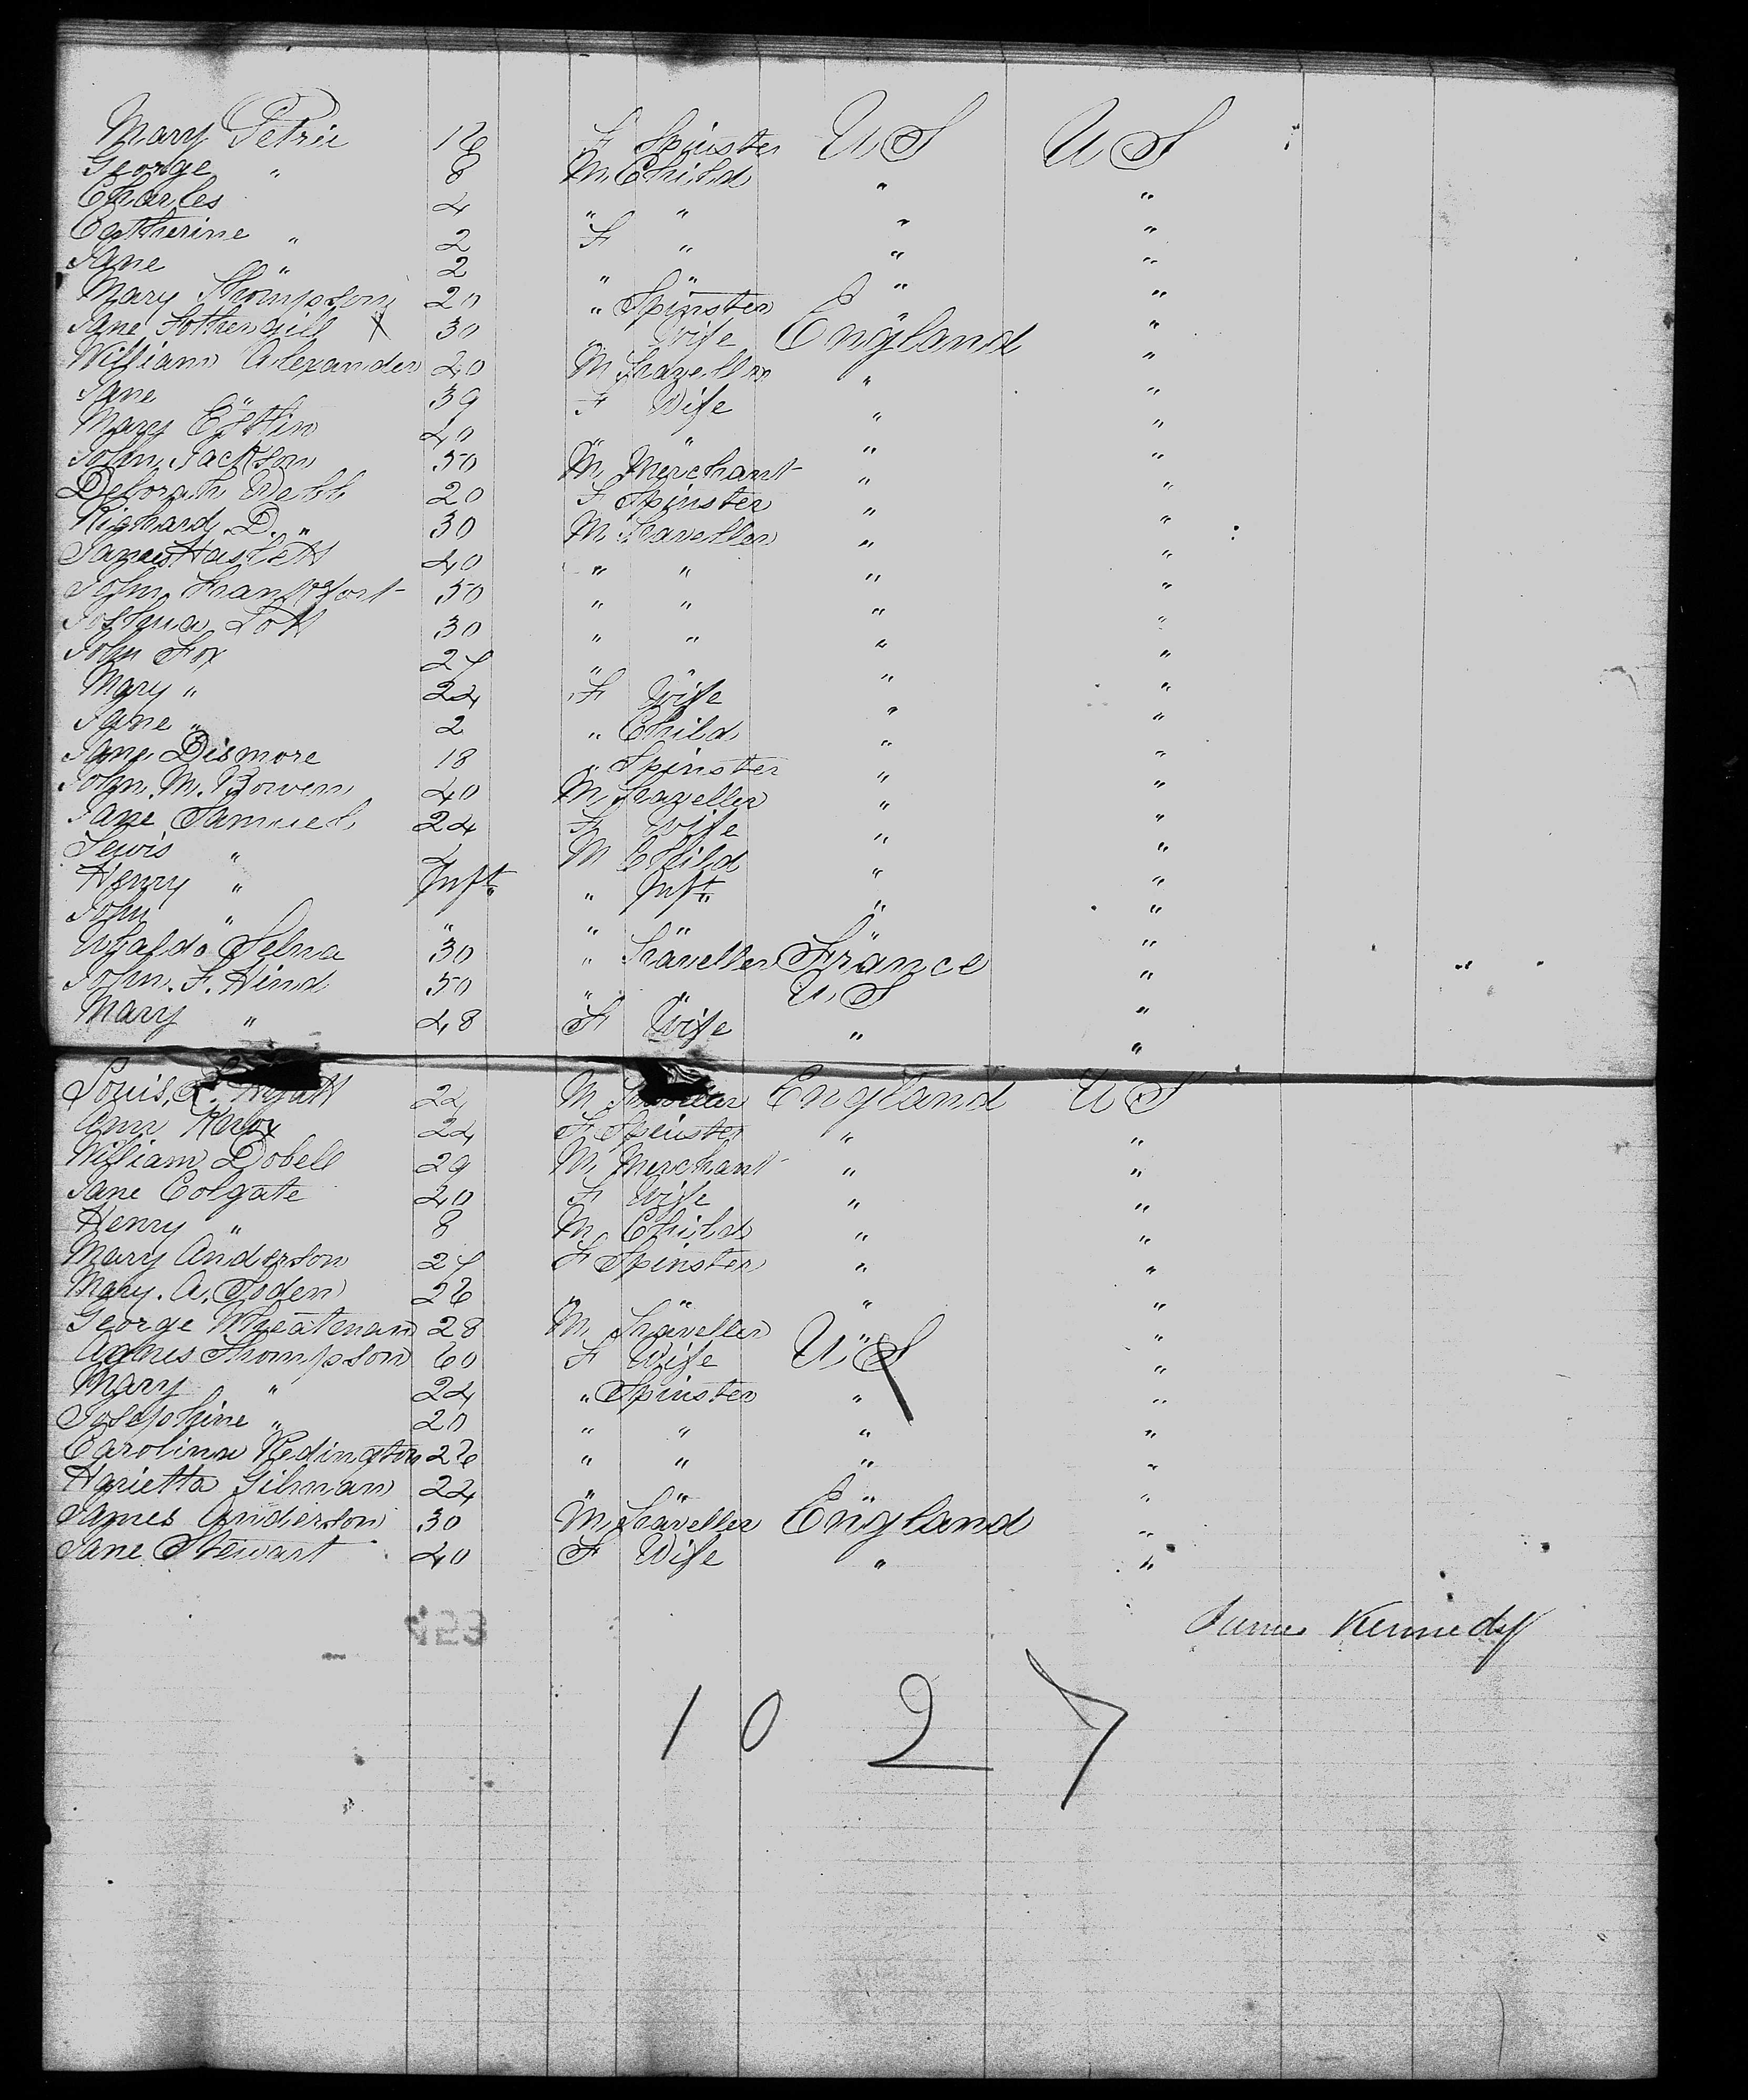 Mary Petrie 16 F Spinster U S U S
George " 8 M Child " "
Charles 4 " " " "
Catherine " 2 F " " "
Jane " 2 " " " "
Mary Thompson 20 " Spinster " "
Jane Fothergill X 30 " Wife England "
William Alexander 20 M Traveller " "
Jane " 39 F Wife " "
Mary 40 " " " "
John Jackson 50 M Merchant " "
Deborah Webb 20 F Spinster " "
Richard D. " 30 M Traveller " "
James Haslett 40 " " " "
John Frankfort 50 " " " "
Joshua Lott 30 " " " "
John Fox 24 " " " "
Mary " 22 F Wife " "
Jane " 2 " Child " "
Jane Dismore 18 " Spinster " "
John M. Bowen 40 M Traveller " "
Jane Samuel 24 F Wife " "
Lewis " M Child " "
Henry " Inft. " Inft. " "
John " " " " " "
Ubaldo Selna 30 " Traveller France "
John. F. Hind 50 " " U S "
Mary " 48 F Wife " "
Louis. Hyatt 24 M England U S
Ann Knox 24 F Spinster " "
William Dobell 29 M Merchant " "
Jane Colgate 40 F Wife " "
Henry " 8 M Child " "
Mary Anderson 24 F Spinster " "
Mary. A. Soden 26 " " " "
George Wheatman 28 M Traveller " "
Agnes Thompson 60 F Wife U S "
Mary " 24 " Spinster " "
Josephine " 20 " " " "
Caroline Redington 26 " " " "
Harietta Gilman 22 " " " "
James Anderson 30 M Traveller England "
Jane Stewart 40 F Wife " "
James Kennedy
1 0 2 7